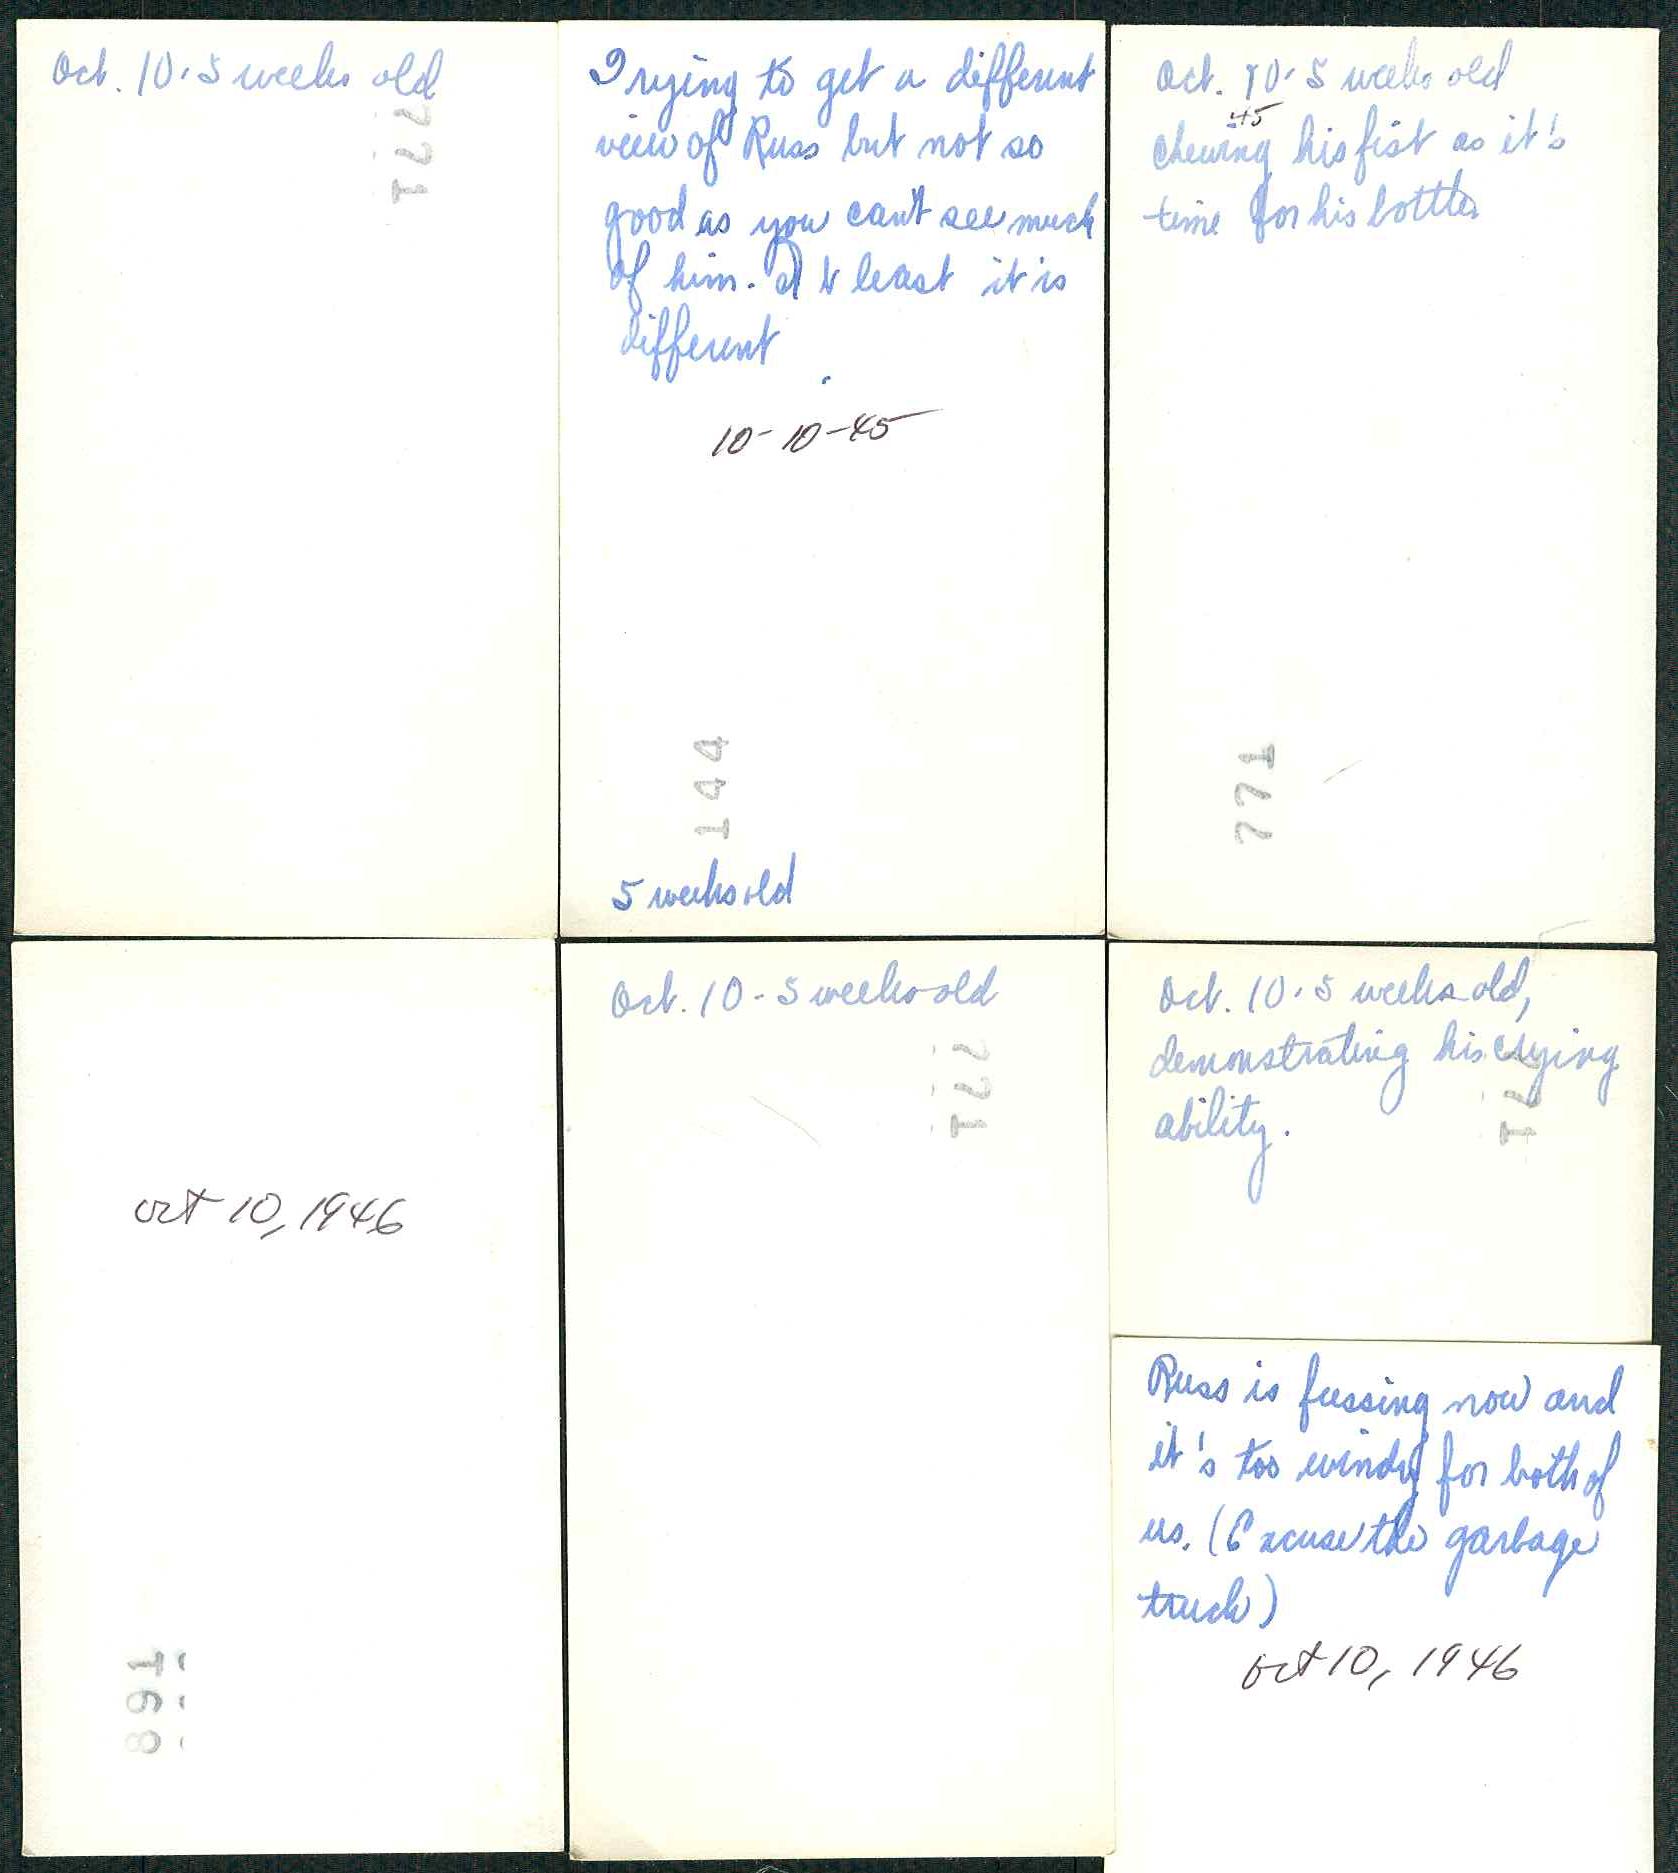 Oct. 10 - 5 weeks old
771
Trying to get a different
view of Russ but not so
good as you can't see much
of him. At least it is
different
.
10-10-45
144
5 weeks old
Oct. 10 - 5 weeks old
45
chewing his fist as it's
time for his bottle
771
Oct 10, 1946
891
Oct. 10 - 5 weeks old
771
Oct. 10 - 5 weeks old,
demonstrating his crying
ability.
771
Russ is fussing now and
it's too windy for both of
us. (Excuse the garbage
truck)
Oct 10, 1946